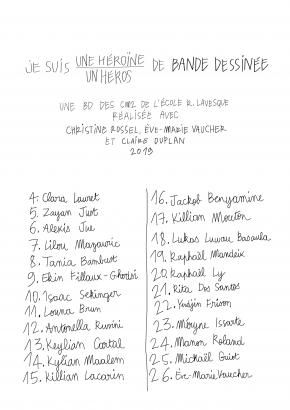 JE SUIS UNE HÉROÏNE
UN HÉROS DE BANDE DESSINÉE
UNE BD DES CM2 DE L'ÉCOLE R. LAVESQUE
RÉALISÉE AVEC
CHRISTINE ROSSEL, ÈVE-MARIE VAUCHER
ET CLAIRE DUPLAN
2019
4. Clara Lauret
5. Zayan Just
6. Alexis Jue
7. Lilou
8. Tania Bambust
9. Ekin
10. Isaac Sekinger
11. Lorma Brun
12. Antonella Rumini
13. Keylian Cortal
14. Kylian Maalem
15. Killian Lacarin
16. Jackob Benyamine
17. Killian Mouton
18. Lukas
19. Raphaël Mandeix
20. Raphaël Ly
21. Rita Dos Santos
22. Frison
23. Issarte
24. Manon Roland
25. Mickaël Guiot
26. Ève-Marie Vaucher